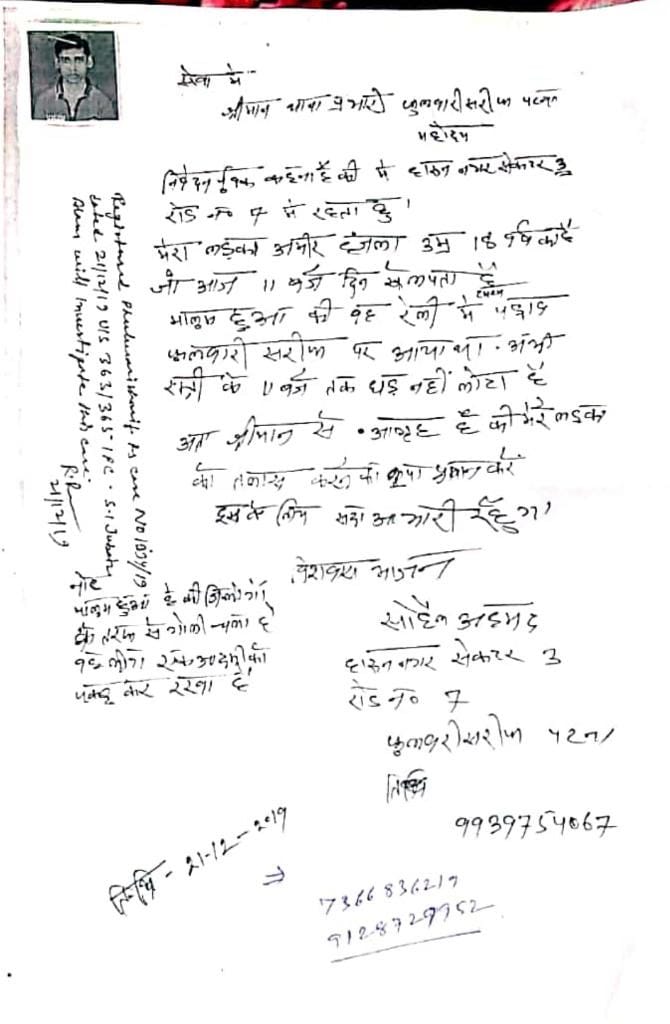 सेवा में
श्रीमान थाना प्रभारी फुलवारी सरीफ पटना
महोदय
निवेदन पूर्वक कहना है की में हारुन नगर सेकटर 3
रोड न० 7 मे रहता हु।
मेरा लड़का अमीर हंजला उम्र 18 वर्ष का है
जो आज 11 बजे दिन से लापता है
मालुम हुआ की वह रैली में
फुलवारी सरीफ पर आया था. अभी
रात्री के 11 बजे तक घड़ नहीं लोटा है
अतः श्रीमान से आग्रह है की मेरे लडक
को तलाश करने की कृपा प्रदान करें
इसके लिए सदा आभारी रहुंगा
भाजन
सोहैल अहमद
हारुन नगर सेकटर 3
रोड न० 7
फुलवारी सरीफ पटना
तिथि
9939754067
नोट
मालुम हुआ है की
के तरफ से गोली चला है
वह लोग एक आदमी को
पकड़ कर रखा है
तिथि - 21-12-2019
⇒ 7366836219
9128729952
Registered Phulwarisharif Ps case No 1034/19
dated 21/12/19 U/S 363/365 IPC. S.I
will investigate this case.
21/12/19